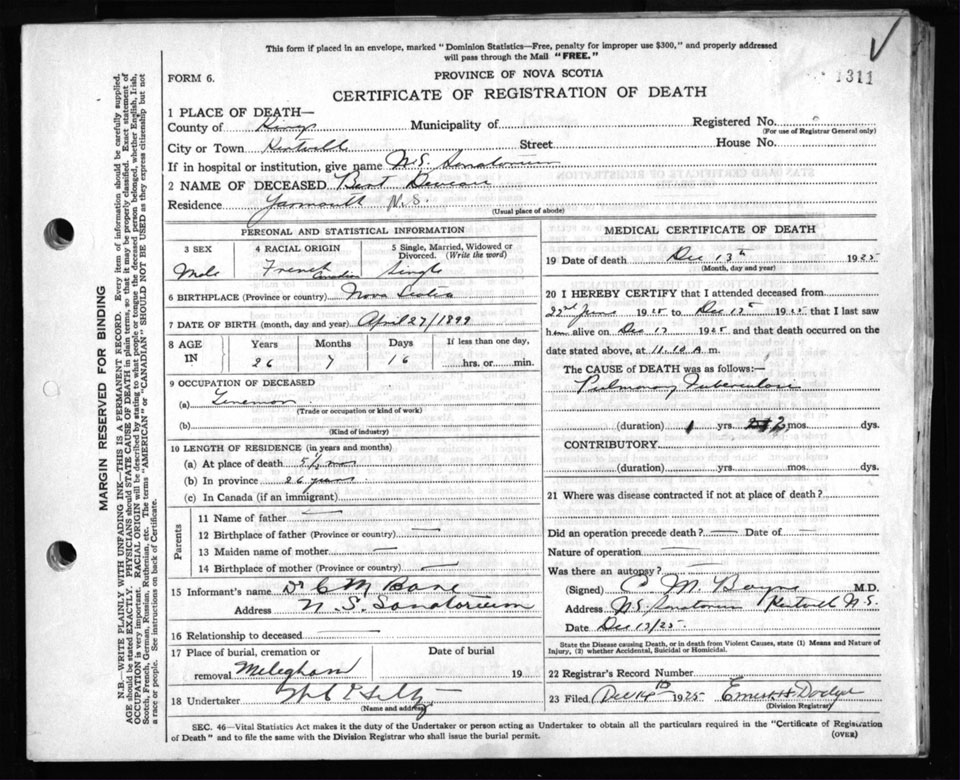 This form if placed in an envelope, marked "Dominion Statistics—Free, penalty for improper use $300," and properly addressed
will pass through the Mail "FREE."
FORM 6.
PROVINCE OF NOVA SCOTIA
1311
CERTIFICATE OF REGISTRATION OF DEATH
1 PLACE OF DEATH—
County of Kings Municipality of Registered No.
(For use of Registrar General only)
City or Town Kentville Street House No.
If in hospital or institution, give name N.S. Sanatorium
2 NAME OF DECEASED Bert
Residence Yarmouth N.S.
(Usual place of abode)
PERSONAL AND STATISTICAL INFORMATION
3 SEX
Male
4 RACIAL ORIGIN
French Canadian
5 Single, Married, Widowed or Divorced. (Write the word)
Single
6 BIRTHPLACE (Province or country) Nova Scotia
7 DATE OF BIRTH (month, day and year) April 27/1899
8 AGE IN
Years Months Days If less than one day,
26 7 16 hrs. or min.
9 OCCUPATION OF DECEASED
(a) Lineman
(Trade or occupation or kind of work)
(b)
(Kind of industry)
10 LENGTH OF RESIDENCE (in years and months)
(a) At place of death 5½ mos
(b) In province 26 years
(c) In Canada (if an immigrant)
Parents
11 Name of father —
12 Birthplace of father (Province or country) —
13 Maiden name of mother —
14 Birthplace of mother (Province or country) —
15 Informant's name Dr C M
Address N.S. Sanatorium
16 Relationship to deceased —
17 Place of burial, cremation or Date of burial
removal Meteghan 19
18 Undertaker
(Name and address)
MEDICAL CERTIFICATE OF DEATH
19 Date of death Dec 13th 1925
(Month, day and year)
20 I HEREBY CERTIFY that I attended deceased from
22nd June 1925 to Dec 13 1925 that I last saw
him alive on Dec 13 1925 and that death occurred on the
date stated above, at 11.10 A m.
The CAUSE of DEATH was as follows:
Pulmonary Tuberculosis
(duration) 1 yrs. 2 mos. dys.
CONTRIBUTORY
(duration) yrs. mos. dys.
21 Where was disease contracted if not at place of death?
Did an operation precede death? — Date of —
Nature of operation —
Was there an autopsy? —
(Signed) C. M. M.D.
Address N.S. Sanatorium Kentville N.S.
Date Dec 13/25
State the Disease causing Death, or in death from Violent Causes, state (1) Means and Nature of
Injury, (2) whether Accidental, Suicidal or Homicidal.
22 Registrar's Record Number
23 Filed Dec 1925 Ernest H Dodge
(Division Registrar)
SEC. 46—Vital Statistics Act makes it the duty of the Undertaker or person acting as Undertaker to obtain all the particulars required in the "Certificate of Registration
of Death" and to file the same with the Division Registrar who shall issue the burial permit. (OVER)
MARGIN RESERVED FOR BINDING
N.B.—WRITE PLAINLY WITH UNFADING INK—THIS IS A PERMANENT RECORD. Every item of information should be carefully supplied.
AGE should be stated EXACTLY. PHYSICIANS should STATE CAUSE OF DEATH in plain terms, so that it may be properly classified. Exact statement of
OCCUPATION is very important. RACIAL ORIGIN will be described by stating to what people or tongue the deceased person belonged, whether English, Irish,
Scotch, French, German, Russian, Ruthenian, etc. The terms "AMERICAN" or "CANADIAN" SHOULD NOT BE USED as they express citizenship but not
a race or people. See instructions on back of Certificate.